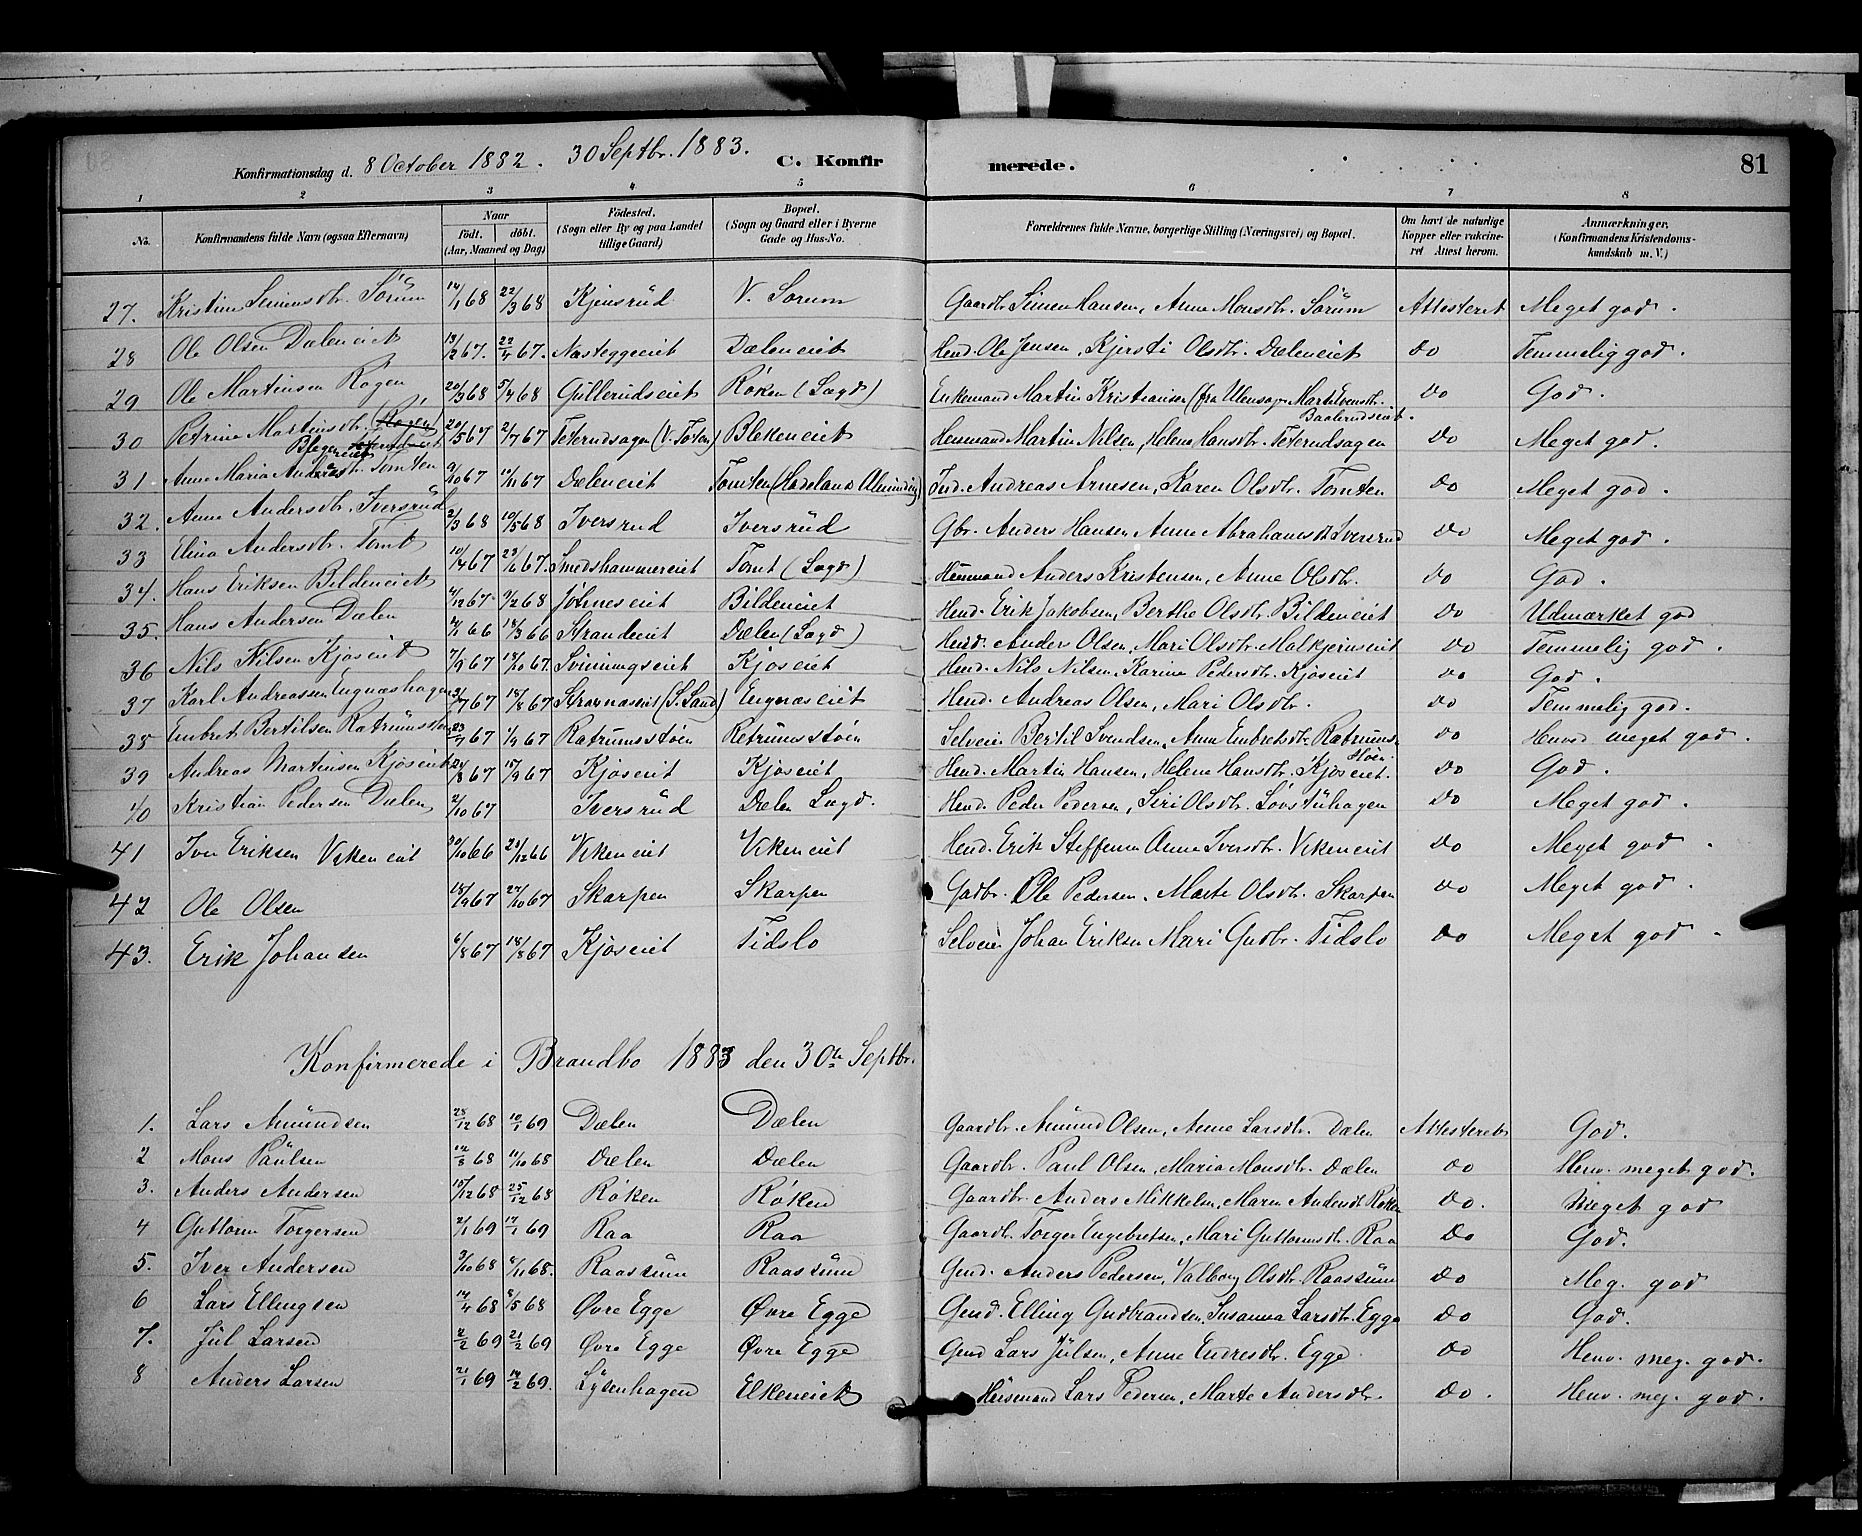 Konfirmationsdag d. 8 October 1882. 30 Septbr. 1883. C. Konfirmerede. 81
1 2 3 4 5 6 7 8
No. Konfirmandens fulde Navn (ogsaa Efternavn) Naar födt. döbt. (Aar, Maaned og Dag) Födested. (Sogn eller By og paa Landet tillige Gaard) Bopæl. (Sogn og Gaard eller i Byerne Gade og Hus-No. Forældrenes fulde Navne, borgerlige Stilling (Næringsvei) og Bopæl. Om havt de naturlige Kopper eller vakcineret Attest herom. Anmærkninger. (Konfirmandens Kristendomskundskab m. V.)
27. Kristine Simensdtr. Sörum 14/1 68 22/3 68 Kjensrud V. Sorum Gaardbr. Simen Hansen, Anne Monsdtr. Sörum Attesteret Meget god.
28 Ole Olsen Dæleneiet 13/12 67. 22/4 67. Næsteggeeiet Dæleneiet Hmd. Ole Jensen, Kjersti Olsdtr. Dæleneiet Do Temmelig god.
29 Ole Martinsen Rögen 20/3 68 5/4 68 Gullerudseiet Röken (Lægd) Enkemand Martin Kristiansen (fra Ulensager Mart. Evensdtr. Baalerudseiet. Do God.
30 Petrine Martinsdtr. (Rögen) Blegeneiet 20/5 67 2/7 67 Teterudsagen (V. Toten) Blekeneiet Husmand Martin Nilsen, Helene Hansdtr. Teterudsagen Do Meget god.
31. Anne Maria Andreasdtr. Tomten 9/10 67 10/11 67 Dæleneiet Tomten (Hadelands Alminding) Ind. Andreas Arnesen, Karen Olsdtr. Tomten Do Meget god.
32. Anne Andersdtr. Iversrüd 2/3 68 10/5 68 Iversrud Iversrüd Gbr. Anders Hansen Anne Abrahamsdt. Iversrud Do Meget god.
33 Elina Andersdtr. Tomt 10/4 67 23/6 67. Smedshammereiet Tomt (Lægd) Husmand Anders Kristensen, Anne Olsdtr. Do God.
34. Hans Eriksen Bildeneiet 4/12 67. 9/2 68 Jöhneseiet Bildeneiet Hmd. Erik Jakobsen, Berthe Olsdtr. Bildeneiet Do Udmærket god
35. Hans Andersen Dælen 4/1 66 18/3 66 Strandeiet Dælen (Lægd) Hmd. Anders Olsen, Mari Olsdtr. Malkjerneiet Do Temmelig god.
36 Nils Nilsen Kjöseiet 7/9 67 18/10 67. Svinningseiet Kjöseiet Hmd. Nils Nilsen, Karine Pedersdtr. Kjöseiet Do God.
37 Karl Andreassen Engnæshagen 3/7 67 18/8 67 (S. Land) Engnæseiet Hmd. Andreas Olsen, Mari Olsdtr. Do Temmelig god.
38 Embret Bertilsen Ratrumsstöen 23/7 67 1/9 67 Ratrumsstöen Retrumsstöen Selveier Bertil Svendsen, Anne Embretsdtr. Rætrumsstöen Do Henved meget god.
39 Andreas Martinsen Kjöseiet 24/8 67 15/9 67 Kjöseiet Kjöseiet Hmd. Martin Hansen, Helene Hansdtr. Kjöseiet. Do God.
40 Kristian Pedersen Dælen 2/10 67 Iversrüd Dælen Lægd. Hmd. Peder Pedersen, Siri Olsdtr. Lövstühagen Do Meget god.
41 Iver Eriksen Vikeneiet 30/10 66 23/12 66 Vikeneiet Vikeneiet Hmd. Erik Steffensen Anne Iversdtr. Vikeneiet Do Meget god.
42 Ole Olsen 18/9 67 27/10 67 Skarpen Skarpen Gadbr. Ole Pedersen, Marte Olsdtr. Skarpen Do Meget god.
43. Erik Johansen 6/8 67 18/8 67 Kjöseiet Tidslo Selveier Johan Eriksen Mari Gudbr. Tidslo Do Meget god.
Konfirmerede i Brandbo 1883 den 30te Septbr.
1. Lars Amündsen 25/12 68 10/1 69 Dælen Dælen Gaardbr. Amünd Olsen, Anne Larsdtr. Dælen Attesteret God.
2 Mons Paulsen 14/8 68 11/10 68 Dælen Dælen Gaardbr. Paul Olsen, Maria Monsdtr. Dælen Do Henv. meget god.
3. Anders Andersen 15/12 68 25/12 68 Röken Röken Gaardbr. Anders Mikkelsn, Maren Andersdt. Röken Do. Meget god
4 Guttorm Torgersen 2/1 69 17/1 69 Raa Raa Gaardbr. Torger Engebretsen, Mari Guttormsdtr. Raa Do God.
5. Iver Andersen 3/10 68 8/11 68. Raassüm Raassüm Gmd. Anders Pedersen, Valborg Olsdtr. Raassüm Do Meg. god
6 Lars Ellingsen 14/4 68 8/5 68 Øvre Egge Øvre Egge Gmd. Elling Gudbrandsen, Susanna Larsdtr. Egge Do God.
7. Jül Larsen 2/2 69 21/2 69 Øvre Egge Øvre Egge Gmd Lars Jülsen, Anne Endresdtr. Egge Do Henv. meg. god.
8 Anders Larsen 21/1 69 14/2 69. Lysenhagen Elkeneiet Husmand Lars Pedersen, Marte Andersdtr. Do. Henv. meg. god.